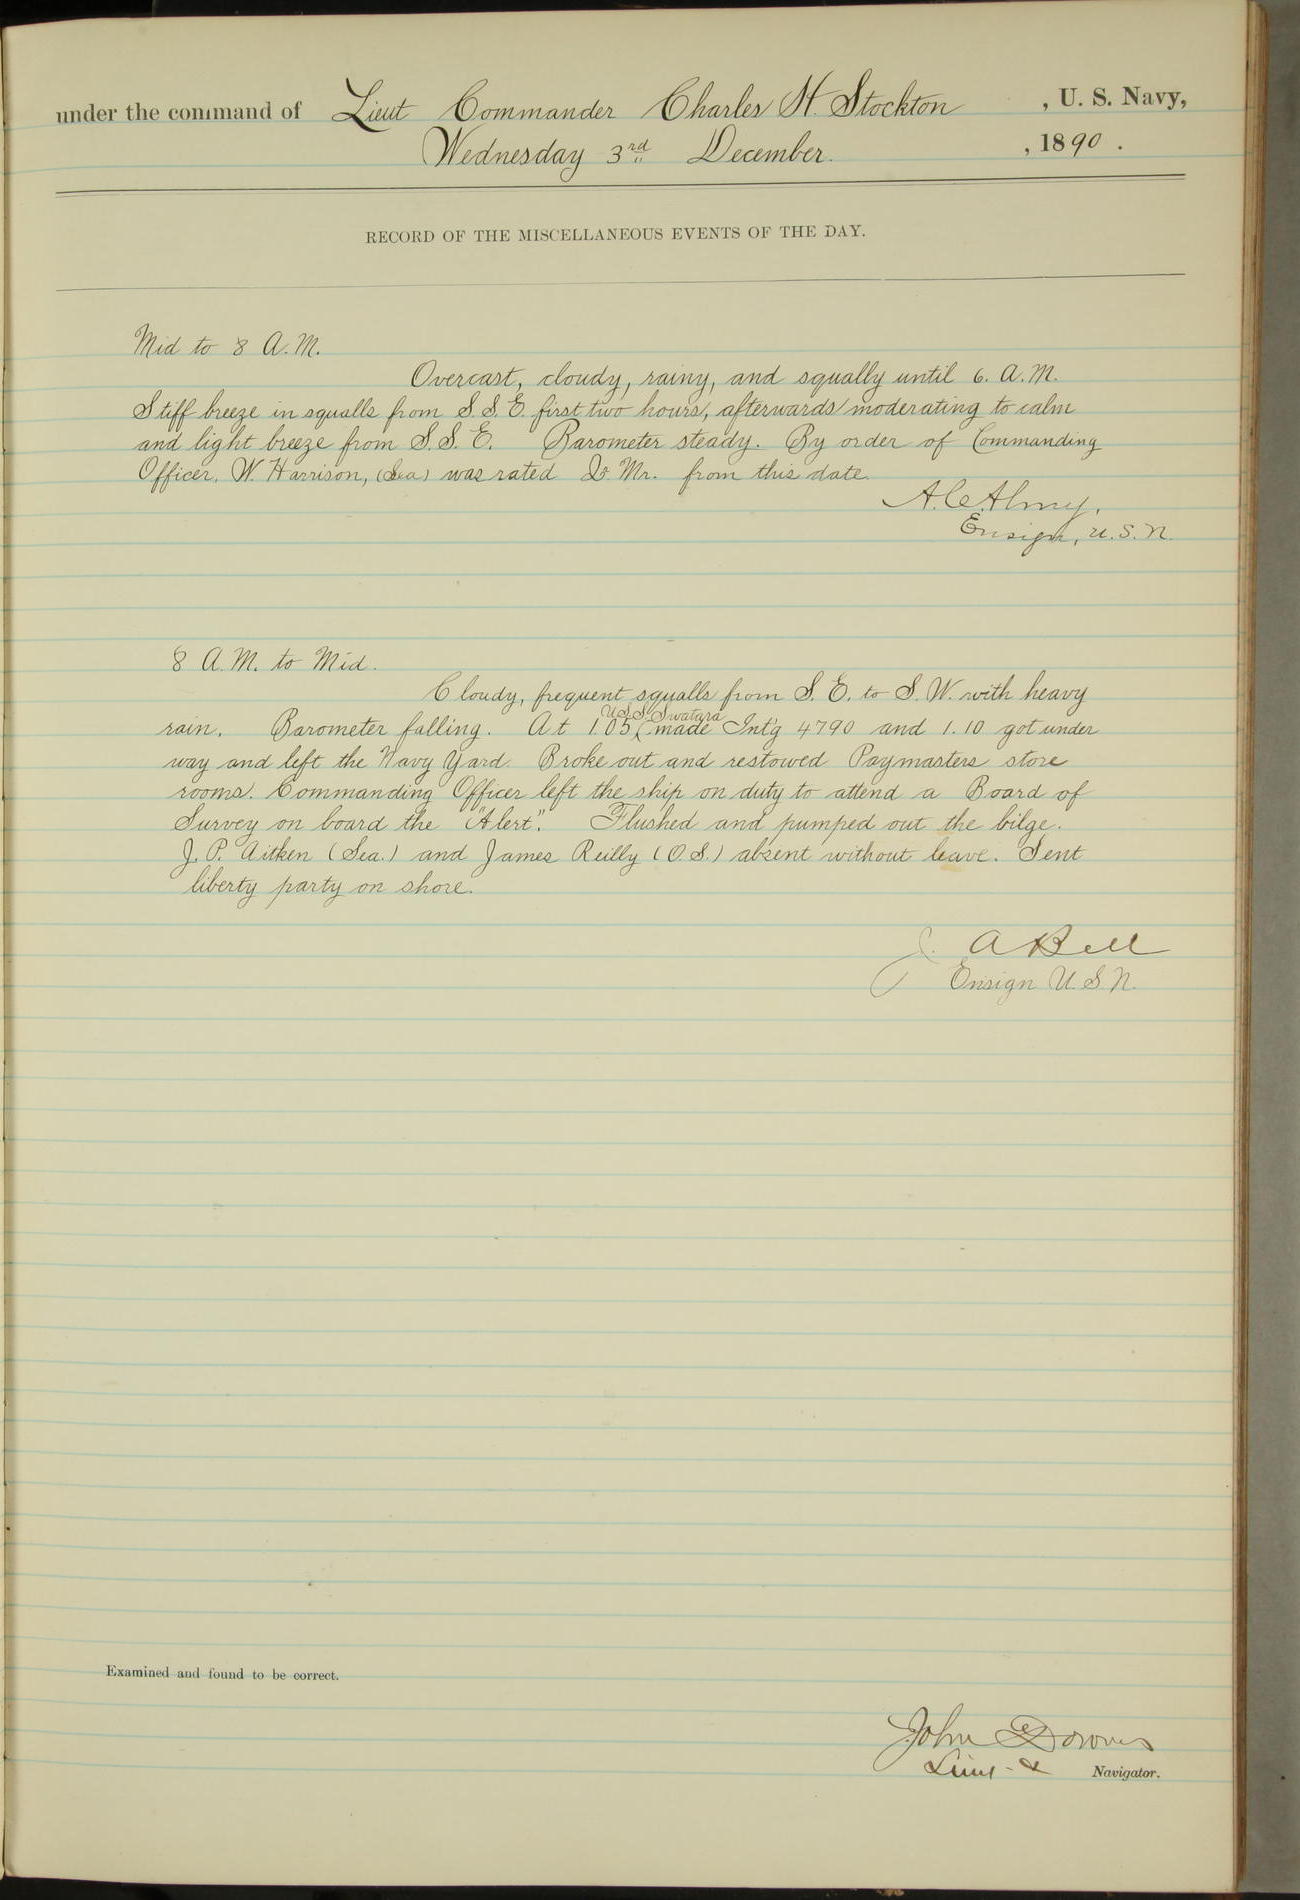 under the command of Lieut Commander Charles H. Stockton, U. S. Navy,
Wednesday 3rd December., 1890.
RECORD OF THE MISCELLANEOUS EVENTS OF THE DAY.
Mid to 8 A.M.
Overcast, cloudy, rainy, and squally until 6. A.M.
Stiff breeze in squalls from S.S.E. first two hours, afterwards moderating to calm
and light breeze from S.S.E. Barometer steady. By order of Commanding
Officer, W. Harrison, (Sea) was rated Q. Mr. from this date.
A. C. Almy,
Ensign, U.S.N.
8 A.M. to Mid.
Cloudy, frequent squalls from S.E. to S.W. with heavy
U.S.S. Swatara
rain. Barometer falling. At 1.05 made Int'g 4790 and 1.10 got under
way and left the Navy Yard. Broke out and restowed Paymasters store
rooms. Commanding Officer left the ship on duty to attend a Board of
Survey on board the "Alert". Flushed and pumped out the bilge.
J. P. Aitken (Sea.) and James Reilly (O.S.) absent without leave. Sent
liberty party on shore.
J. A Bell
Ensign U.S.N.
Examined and found to be correct.
John Downes
Lieut - & Navigator.